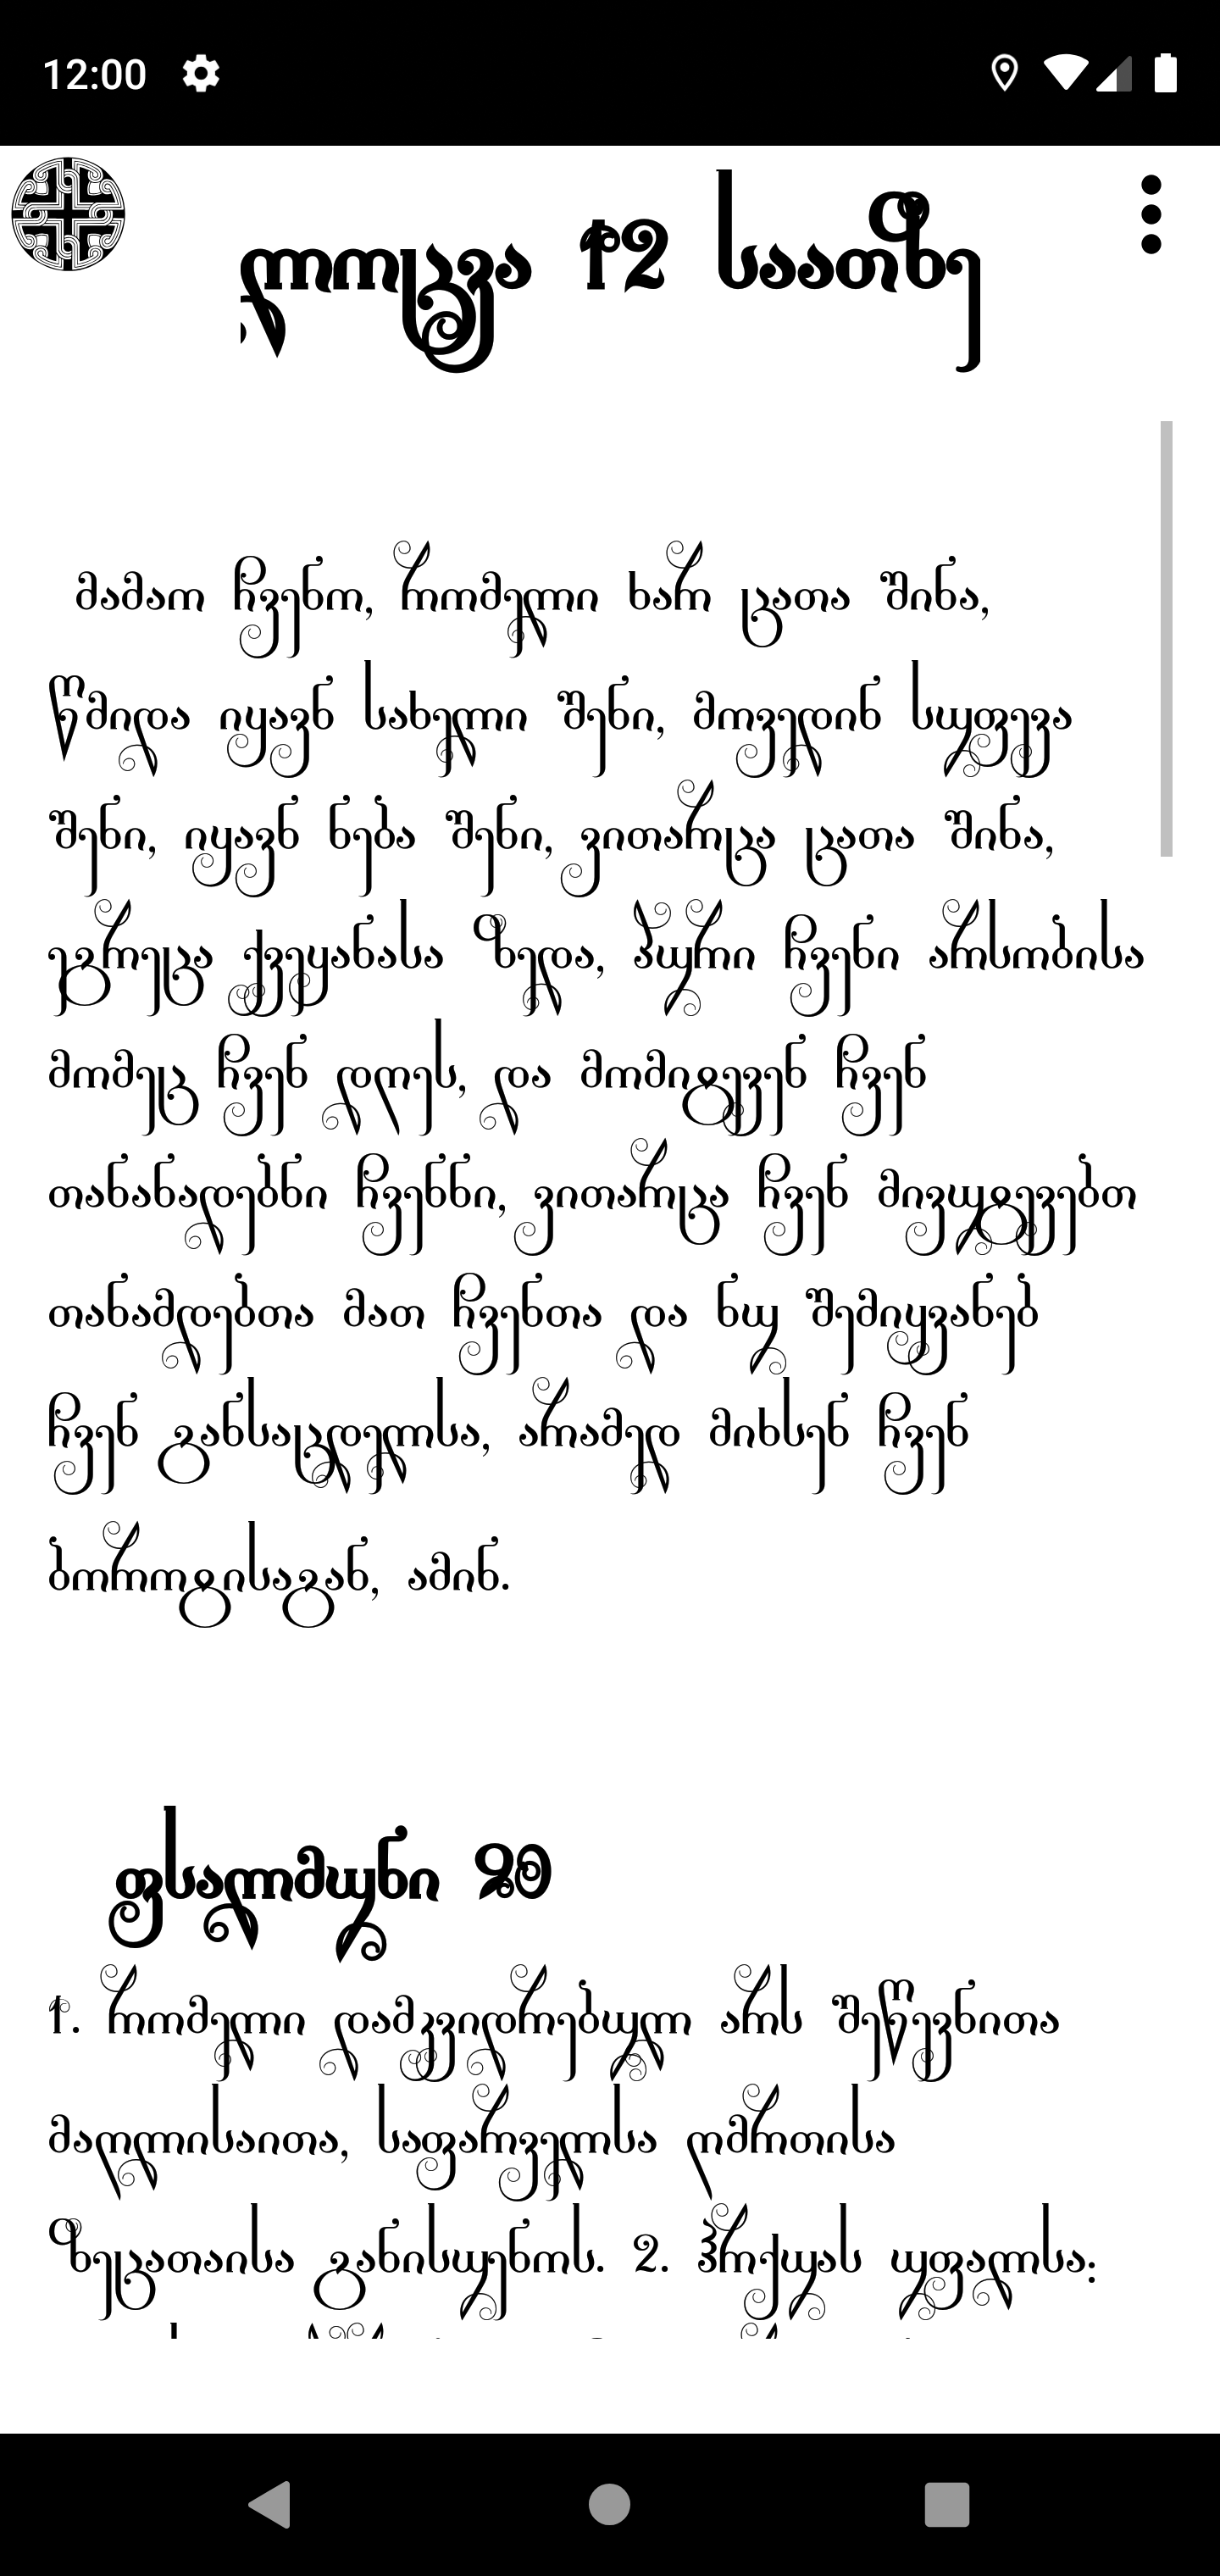 12:00
ლოცვა 12 საათზე
მამაო ჩვენო, რომელი ხარ ცათა შინა,
წმიდა იყავნ სახელი შენი, მოვედინ სუფევა
შენი, იყავნ ნება შენი, ვითარცა ცათა შინა,
ეგრეცა ქვეყანასა ზედა, პური ჩვენი არსობისა
მომეც ჩვენ დღეს, და მომიტევენ ჩვენ
თანანადებნი ჩვენნი, ვითარცა ჩვენ მივუტევებთ
თანამდებთა მათ ჩვენთა და ნუ შემიყვანებ
ჩვენ განსაცდელსა, არამედ მიხსენ ჩვენ
ბოროტისაგან, ამინ.
ფსალმუნი 90
1. რომელი დამკვიდრებულ არს შეწევნითა
მაღლისაითა, საფარველსა ღმრთისა
ზეცათაისა განისუენოს. 2. ჰრქუას უფალსა: